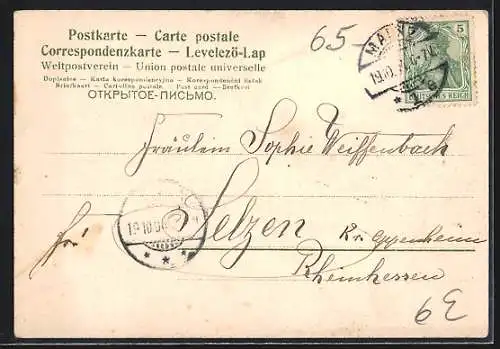 Postkarte — Carte postale
Correspondenzkarte — Levelező-Lap
Weltpostverein — Union postale universelle
Dopisnice — Karta korespondencyjna — Korespondenční lístek
Briefkaart — Cartolina postale — Post card — Brefkort
ОТКРЫТОЕ-ПИСЬМО.
65-
MAINZ
19.10.
5
DEUTSCHES REICH
Fräulein Sophie Weiffenbach
Selzen
Kr. Oppenheim
Rheinhessen
19.10.
6E